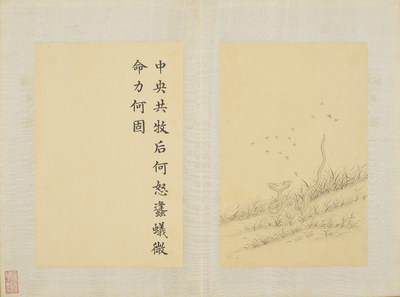 中央共牧后何怒蠭蟻微
命力何固